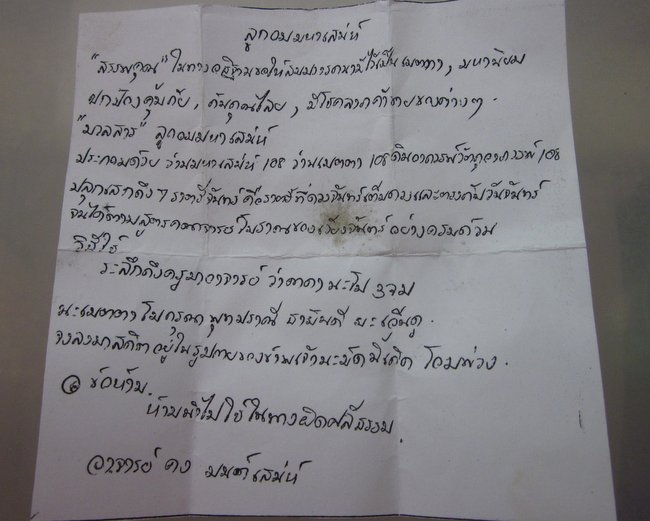 ลูกอมมหาเสน่ห์
"สรรพคุณ" ในทางอธิฐานขอให้สมมารถนาไว้เป็นเมตตา, มหานิยม
ปกป้องคุ้มภัย, กันคุณไสย, มีโชคลาภค้าขายของต่างๆ.
"มวลสาร" ลูกอมมหาเสน่ห์
ประกอบด้วย ว่านมหาเสน่ห์ 108 ว่านเมตตา 108 ดินอาถรรพ์วัตถุอาถรรพ์ 108
ปลุกเสกถึง 7 ราตรีจันทร์ คือราตรีที่ดวงจันทร์เต็มดวงและตรงกับวันจันทร์
จนได้ตามสูตรคณาจารย์โบราณของเวียงจันทร์อย่างครบถ้วน
วิธีใช้
ระลึกถึงครูบาอาจารย์ ว่าคาถา นะโม 3 จบ
นะเมตตา โมกรุณา พุทปราณี ธายินดี ยะเอ็นดู.
จงลงมาสถิตอยู่ในรูปกายของข้าพเจ้านะมัดมิเคิด โอมพ่วง.
ข้อห้าม.
ห้ามนำไปใช้ในทางผิดศีลธรรม.
อาจารย์ คง มนต์เสน่ห์